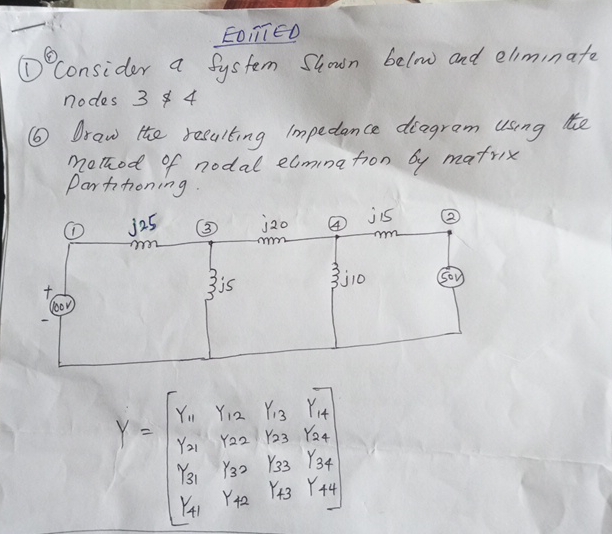 EDITTED
① ⓐ Consider a System Shown below and eliminate
nodes 3 & 4
ⓑ Draw the resulting impedance diagram using the
method of nodal elimination by matrix
Partitioning.
① j25 ③ j20 ④ j15 ②
+ 100V - j5 j10 50V
Y = [ Y11 Y12 Y13 Y14
Y21 Y22 Y23 Y24
Y31 Y32 Y33 Y34
Y41 Y42 Y43 Y44 ]